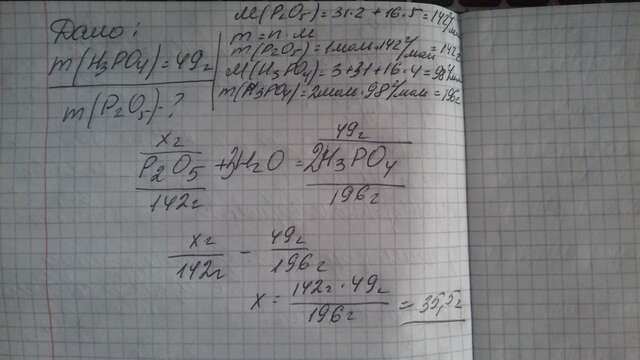 Дано:
m(H₃PO₄)=49г
m(P₂O₅)-?
M(P₂O₅)=31·2+16·5=142г/
m=n·M
m(P₂O₅)=1моль·142г/моль=142г
M(H₃PO₄)=3+31+16·4=98г/
m(H₃PO₄)=2моль·98г/моль=196г
xг 49г
P₂O₅+3H₂O=2H₃PO₄
142г 196г
xг/142г - 49г/196г
x = 142г·49г/196г = 35,5г